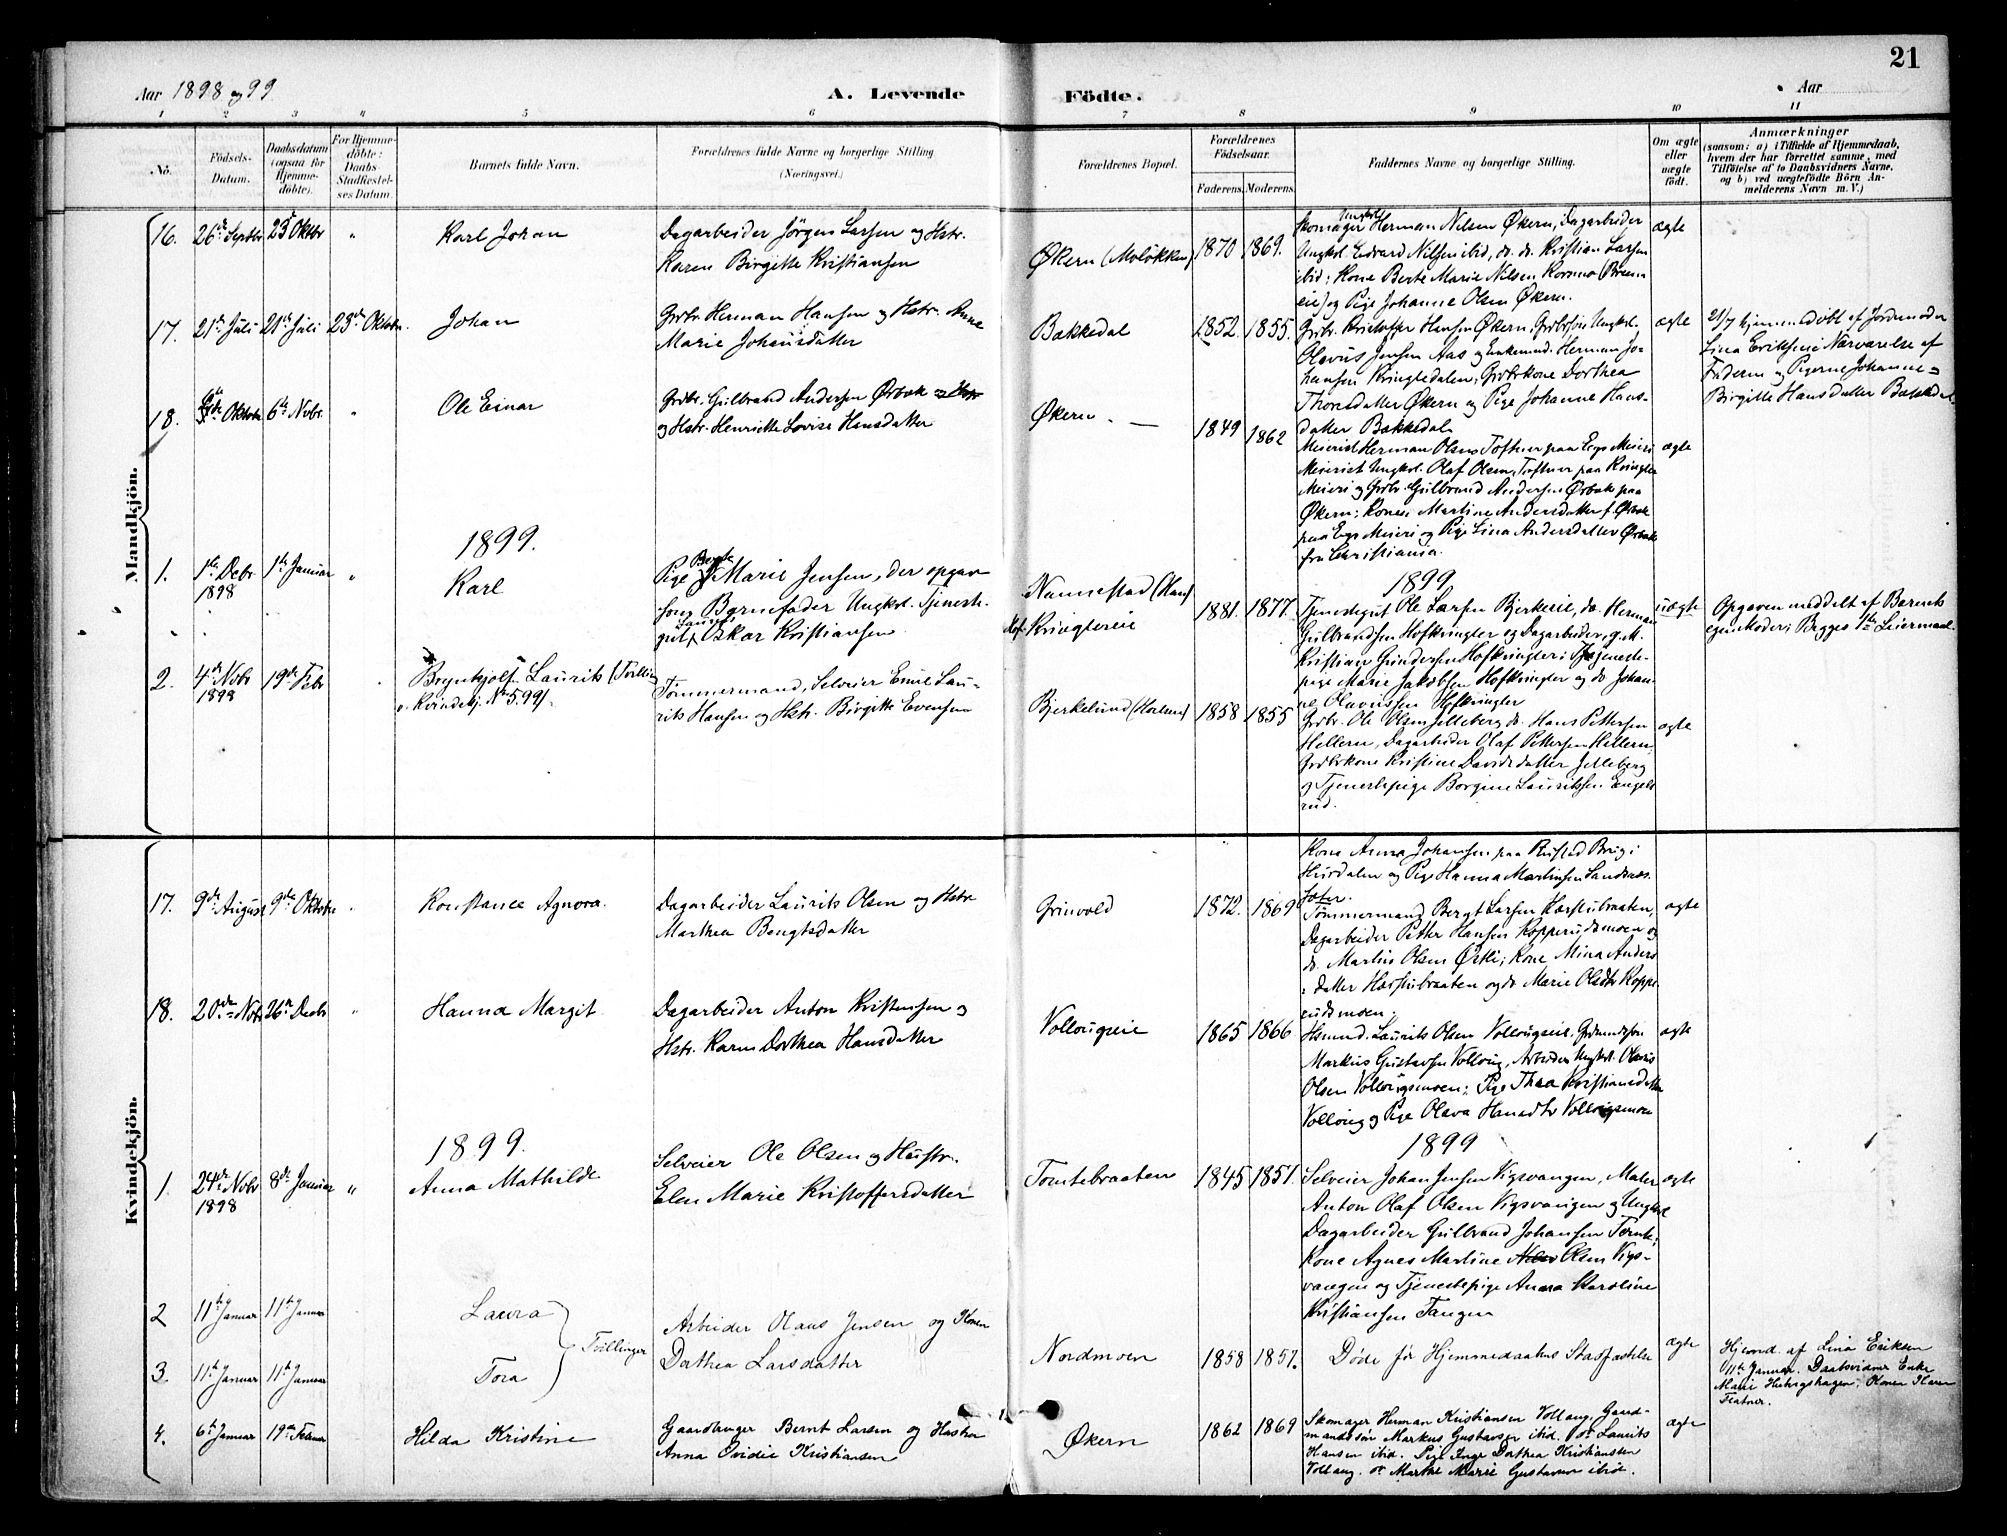 21
Aar 1898 og 99.
A. Levende Födte.
Aar
1 2 3 4 5 6 7 8 9 10 11
No.
Födsels-
Datum.
Daabsdatum
(ogsaa for
Hjemme-
döbte).
For Hjemme-
döbte:
Daabs
Stadfæstel-
ses Datum.
Barnets fulde Navn.
Forældrenes fulde Navne og borgerlige Stilling
(Næringsvei.)
Forældrenes Bopæl.
Forældrenes
Födselsaar.
Faderens. Moderens.
Faddernes Navne og borgerlige Stilling.
Om ægte
eller
uægte
födt.
Anmærkninger
(saasom: a) i Tilfælde af Hjemmedaab,
hvem der har forrettet samme, med
Tilföielse af to Daabsvidners Navne,
og b) ved uægtefödte Börn An-
melderens Navn m. V.)
Mandkjön.
16. 26de Septbr 23de Oktbr " Karl Johan
Dagarbeider Jörgen Larsen og Hstr.
Karen Birgitte Kristiansen
Økern (Moløkken) 1870 1869.
Skomager Ungkl Herman Nilsen Økern, Dagarbeider
Ungkl. Edvard Nilsen ibid, do. do. Kristian Larsen
ibid; Kone Berte Marie Nilsen
og Pige Johanne Olsen Økern.
ægte
17. 21de Juli 21de Juli 23de Oktober Johan
Grdbr. Herman Hansen og Hstr. Anne
Marie Johansdatter
Bakkedal 1852. 1855.
Grdbr. Kristoffer Hansen Økern, Ungkl.
Olavus Jensen Aas og Enkemd. Herman Jo-
hansen Kringledalen; Grdbrkone Dorthea
Thorsdatter Økern og Pige Johanne Hans-
datter Bakkedal
ægte
21/7 hjemmedøbt af Jordemoder
Lina Eriksen i Nærværelse af
Faderen og Pigerne Johanne og
Birgitte Hansdatter Bakkedal.
18. Oktober 6te Novbr " Ole Einar
Grdbr. Gulbrand Andersen Ørbæk
og Hstr. Henriette Lovise Hansdatter
Økern 1849 1862
Meierist Herman Olsen Toftner paa Eegs Meieri
Meierist Ungkl. Olaf Olsen Toftner paa Kringler
Meieri og Grdbr. Gulbrand Andersen Ørbæk paa
Økern; Kone Martine Andersdatter f. Ørbæk
paa Eegs Meieri og Pige Lina Andersdatter Ørbæk
fra Christiania.
ægte
1899.
1899
1. 1ste Debr
1898 1ste Januar " Karl
Pige Berte Marie Jensen, der opgav
som Barnefader Ungkl. Tjeneste-
gut Laurits Oskar Kristiansen
Nannestad (Hans)
Kringlereie
1881. 1877.
Tjenestegut Ole Larsen Bjerkeeie, do. Herman
Gulbrandsen Hofkringler og Dagarbeider, g.M.
Kristian Gundersen Hofkringler; Tjeneste-
pige Marie Jakobsen Hofkringler og do Johan-
ne Olavussen Hofkringler
uægte
Opgaven meddelt af Barnets
egen Moder; Begges 1ste Leiermaal.
2. 4de Novbr
1898 19de Febr Brynhjolf Laurits (Tvilling
v. Kvindekj. No 5. 99).
Tømmermand, Selveier Emil Lau-
rits Hansen og Hstr. Birgitte Evensen
Bjerkelund (Horlund) 1858 1855
Grdbr. Ole Olsen Jelleberg, do. Hans Pettersen
Hellern, Dagarbeider Olaf Pettersen Hellern;
Grdbrkone Kristine Davidsdatter Jelleberg
og Tjenestepige Borgine Lauritssen Engels-
rud.
ægte
Kvindekjön.
17. 9de August 9de Oktober " Konstance Agnora
Dagarbeider Laurits Olsen og Hstr
Marthea Bengtsdatter
Grinvold 1872. 1869
Kone Anna Johansen paa Rustad Brug i
Hurdalen og Pige Hanna Martinsen Sandnæs-
Tømmermand Bergt Larsen Hærstubraaten,
Dagarbeider Petter Hansen Kopperudsmoen og
do. Martin Olsen Ørbli; Kone Mina Anders-
datter Hærstubraaten og do Marie Olsdtr Koppe-
rudsmoen.
ægte
18. 20de Novbr 26de Decbr " Hanna Margit
Dagarbeider Anton Kristensen og
Hstr. Karen Dorthea Hansdatter
Vollougseie 1865 1866
Husmd. Laurits Olsen Vollougseie, Grdmandssøn
Markus Gustavsen Volloug, Arbeider Ungkl. Olavus
Olsen Vollougsmoen; Pige Thea Kristiansdatter
Volloug og Pige Olava Hansdtr Vollougsmoen
ægte
1899.
1899
1. 24de Novbr
1898 8de Januar " Anna Mathilde
Selveier Ole Olsen og Hustr.
Elen Marie Kristoffersdatter
Tomtebraaten 1845 1851.
Selveier Johan Jensen Vigsvangen, Maler
Anton Olaf Olsen Vigsvangen og Ungkl
Dagarbeider Gulbrand Johansen Tomte;
Kone Agnes Martine Olsen Vigs-
vangen og Tjenestepige Anna Karoline
Kristiansen Tangen
ægte
2 11te Januar 11te Januar Laura
3. 11te Januar 11te Januar Tora
Tvillinger
Arbeider Olaus Jensen og Konen
Dorthea Larsdatter
Nordmoen 1858 1851.
Døde før Hjemmedaabens Stadfæstelse
ægte
Hjemd. af Lina Eriksen
11te Januar. Daabsvidner Enke
Marie Helvigshagen, Konen Karen
4. 6te Januar 19de Februar Hilda Kristine
Gaardbruger Bernt Larsen og Hustru
Anna Ovidie Kristiansen
Økern 1862 1869
Skomager Herman Kristiansen Vollaug. Gaard-
mandssøn Markus Gustavsen ibid. do Laurits
Hansen ibid. Pige Inge Dorthea Kristiansen
Vollaug. do Marthe Marie Gustavsen ibid.
ægte